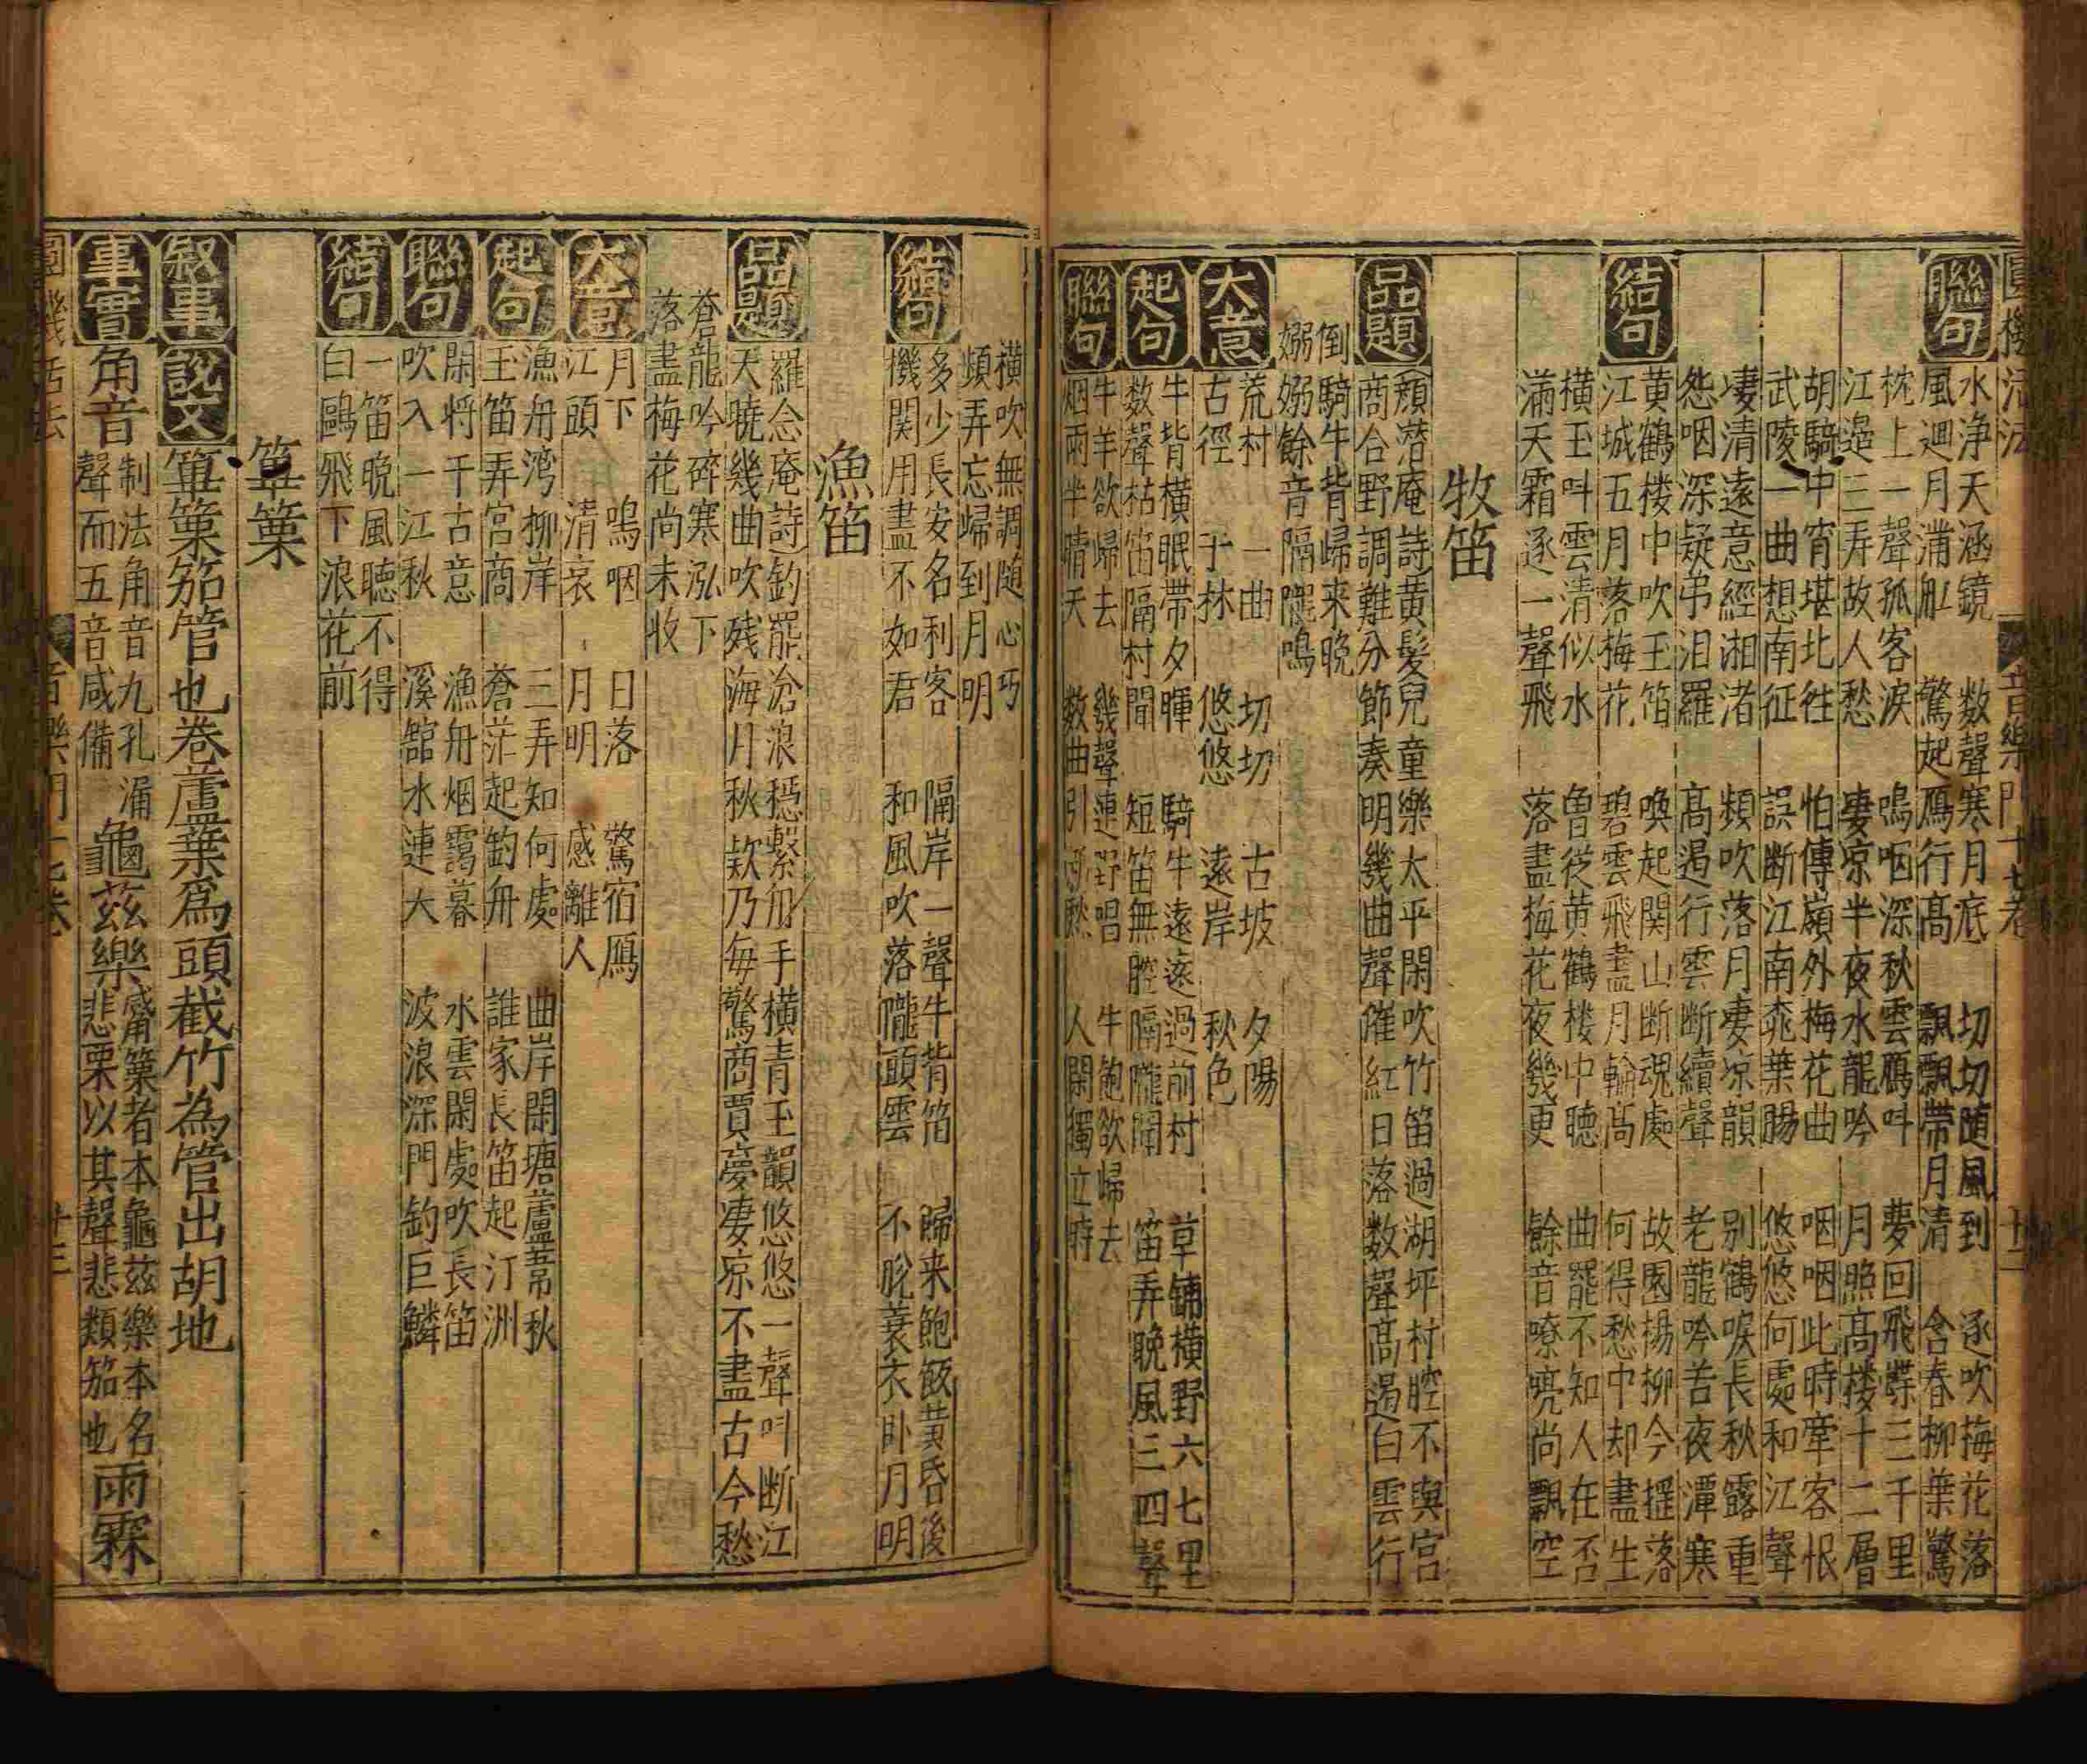 圓機活法 音樂門十七卷 十二
聯句 水浄天涵鏡 数聲寒月底 切切随風到 逐吹梅花落
風迴月滿舡 驚起鴈行高 飄飄帶月清 含春柳葉驚
枕上一聲孤客淚 嗚咽深秋雲鴈叫 夢回飛蝶三千里
江邉三弄故人愁 凄凉半夜水龍吟 月照高楼十二層
胡騎中宵堪北徃 怕傳嶺外梅花曲 咽咽此時牽客恨
武陵一曲想南征 誤断江南葉腸 悠悠何處和江聲
凄清遠意經湘渚 頻吹落月凄凉韻 别鶴唳長秋露重
怨咽深疑弔汨羅 高遏行雲断續聲 老龍吟苦夜潭寒
結句 黄鶴楼中吹玉笛 喚起関山断魂處 故園楊柳今揺落
江城五月落梅花 碧雲飛盡月輪高 何得愁中却盡生
横玉叫雲清似水 曾從黄鶴楼中聽 曲罷不知人在否
滿天霜逐一聲飛 落盡梅花夜幾更 餘音嘹喨尚飄空
牧笛
品題 顏潛庵詩黄髮兒童樂太平閑吹竹笛過湖坪村腔不與宮
商合野調難分節奏明幾曲聲催紅日落数聲高遏白雲行
倒騎牛背歸来晩
嫋嫋餘音隔隴鳴
大意 荒村 一曲 切切 古坡 夕陽
古徑 千林 悠悠 遠岸 秋色
起句 牛背横眠帶夕暉 騎牛遠遠過前村 草鋪横野六七里
数聲枯笛隔村聞 短笛無腔隔隴聞 笛弄晩風三四聲
聯句 牛羊欲歸去 幾聲連野唱 牛飽欲歸去
烟雨半晴天 数曲引愁 人閑獨立時
横吹無調随心巧
頻弄忘歸到月明
結句 多少長安名利客 隔岸一聲牛背笛 歸来飽飯黄昏後
機関用盡不如君 和風吹落隴頭雲 不脫蓑衣卧月明
漁笛
品題 羅念庵詩釣罷滄浪穏繫舟手横青玉韻悠悠一聲叫断江
天曉幾曲吹残海月秋欵乃每驚商賈夢凄凉不盡古今愁
蒼龍吟碎寒泓下
落盡梅花尚未收
大意 月下 嗚咽 日落 驚宿鴈
江頭 清哀 月明 感離人
起句 漁舟湾柳岸 三弄知何處 曲岸閑塘蘆葦秋
玉笛弄宮商 蒼茫起釣舟 誰家長笛起汀洲
聯句 閑将千古意 漁舟烟靄暮 水雲閑處吹長笛
吹入一江秋 溪舘水連大 波浪深門釣巨鱗
結句 一笛晩風聽不得
白鷗飛下浪花前
篳篥
叙事 說文 篳篥笳管也卷蘆葉爲頭截竹為管出胡地
事實 角音 制法角音九孔漏
聲而五音咸備 龜茲樂 觱篥者本龜茲樂本名
悲栗以其聲悲類笳也 雨霖
圓機活法 音樂門十七卷 十三